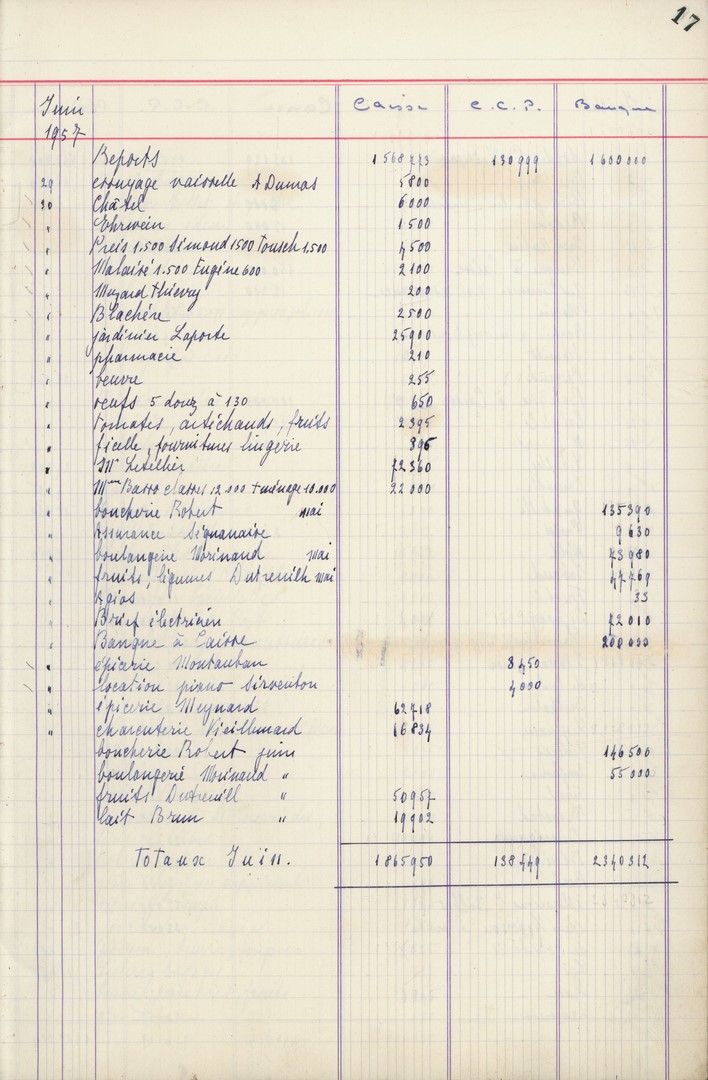 17
Juin Caisse C.C.P. Banque
1957
Reports 1568773 130999 1600000
29 essuyage vaisselle A Dumas 5800
30 Châtel 6000
" Ehrwein 1500
" Preis 1.500 Simond 1500 Tousch 1.500 4500
" Malaisé 1.500 Eugène 600 2100
" Muzard Thierry 200
" Blachère 2500
" jardinier Laporte 25900
" pharmacie 210
" beurre 255
" oeufs 5 douz à 130 650
" tomates, artichauds, fruits 2395
" ficelle, fournitures lingerie 896
" Letellier 72360
" Mme Basso classes 12.000 + ménage 10.000 22000
" boucherie Robert mai 135390
" Assurance Séquanaise 9630
" boulangerie Morinand mai 73980
" fruits, légumes Dutreuilh mai 47769
" Agios 33
" Brief électricien 72010
" Banque à Caisse 200000
" épicerie Montauban 3450
" location piano Sirventon 4000
" épicerie Meynard 62718
" charcuterie Vieillemard 16834
boucherie Robert juin 146500
boulangerie Morinand " 55000
fruits Dutreuill " 50957
lait Brun " 19902
Totaux Juin. 1865950 138449 2340312